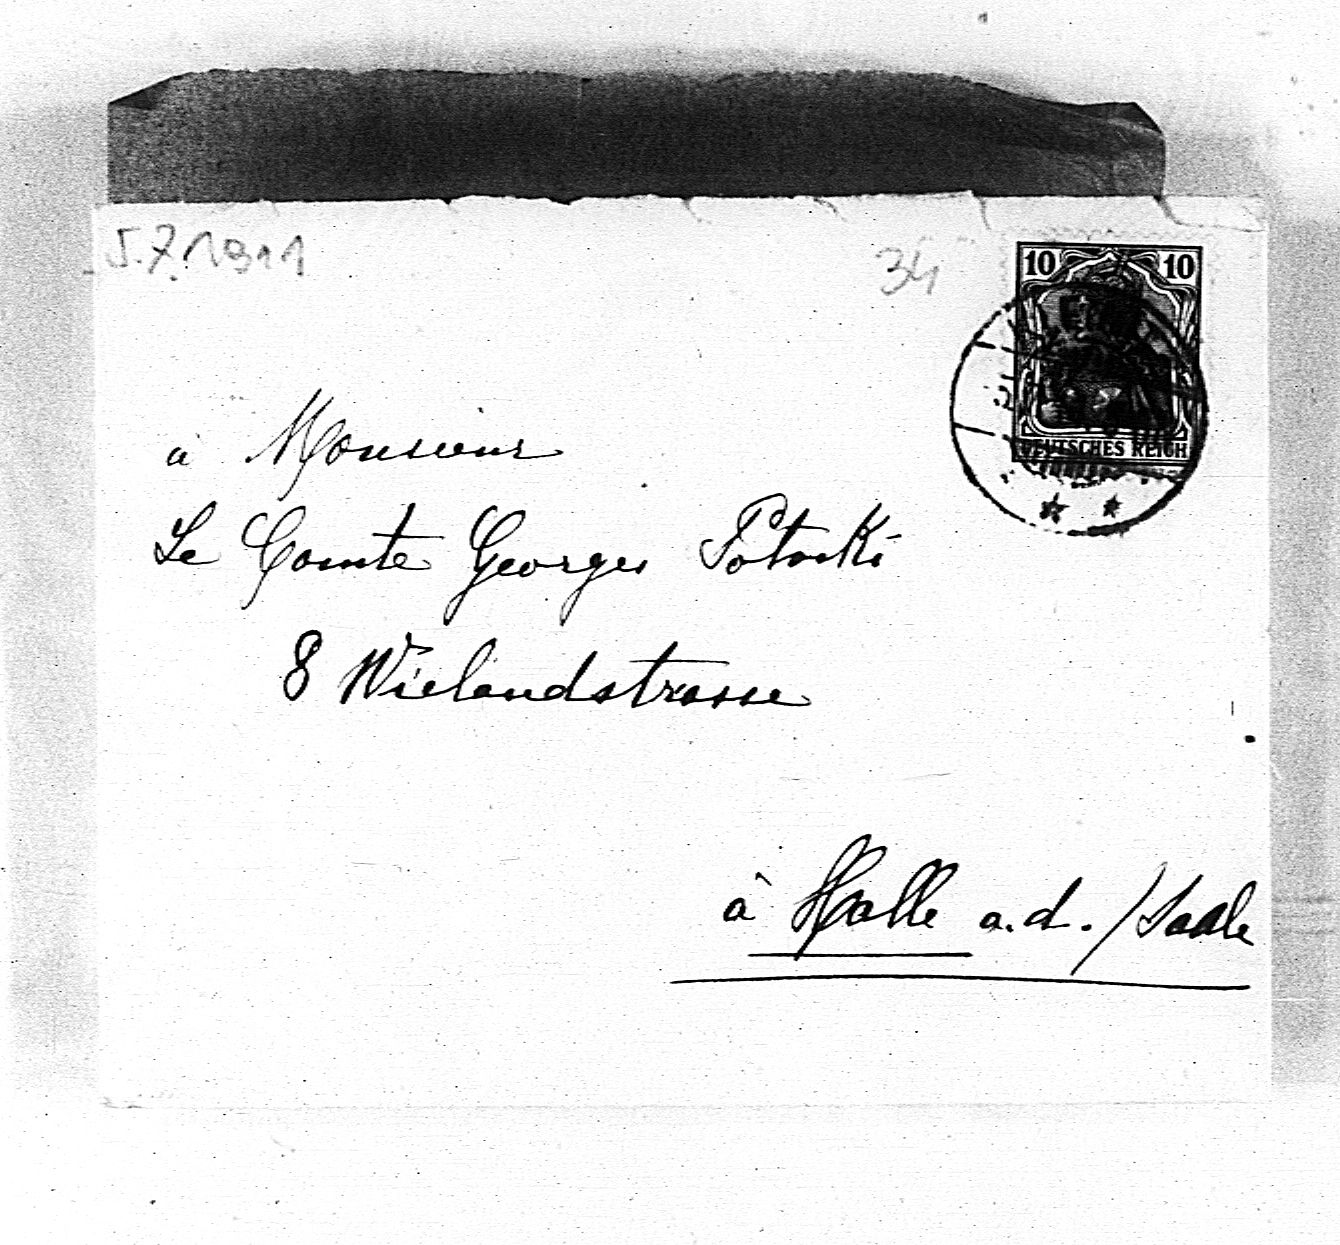 5.7.1911
34
10 10
DEUTSCHES REICH
à Monsieur
Le Comte Georges Potocki
8 Wielandstrasse
à Halle a.d./Saale